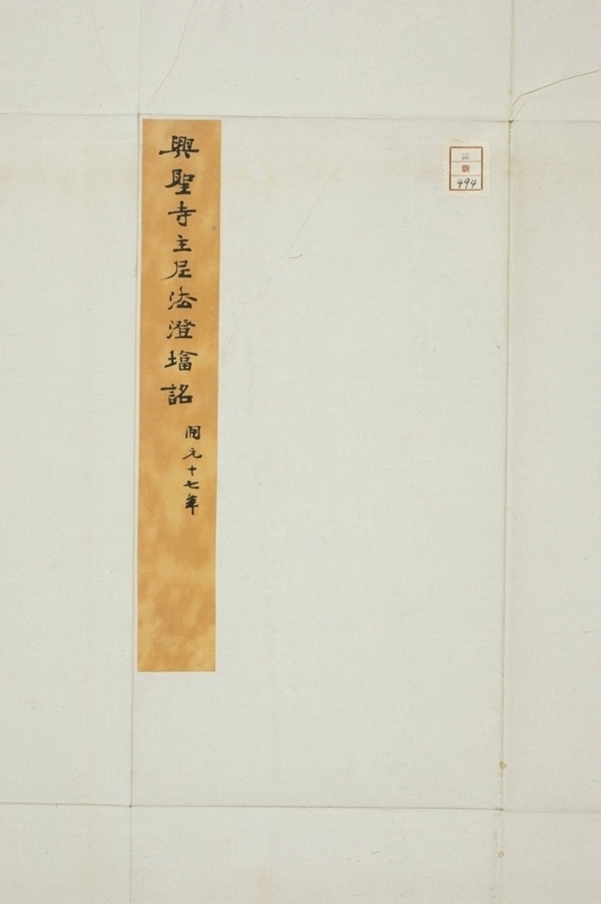 興聖寺主尼法澄塔銘
開元十七年
新
494